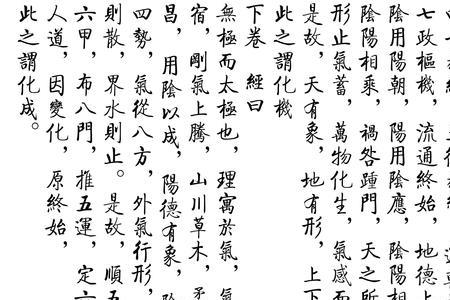 七政樞機，流通終始，地德上
陰用陽朝，陽用陰應，陰陽相
陰陽相乘，禍咎踵門，天之所
形止氣蓄，萬物化生，氣感而
是故，天有象，地有形，上下
此之謂化機
下卷　經曰
無極而太極也，理寓於氣，氣
宿，剛氣上騰，山川草木，
昌，用陰以成，陽德有象，陰
四勢，氣從八方，外氣行形，
則散，界水則止。是故，順五
六甲，布八門，推五運，定六
人道，因變化，原終始，
此之謂化成。